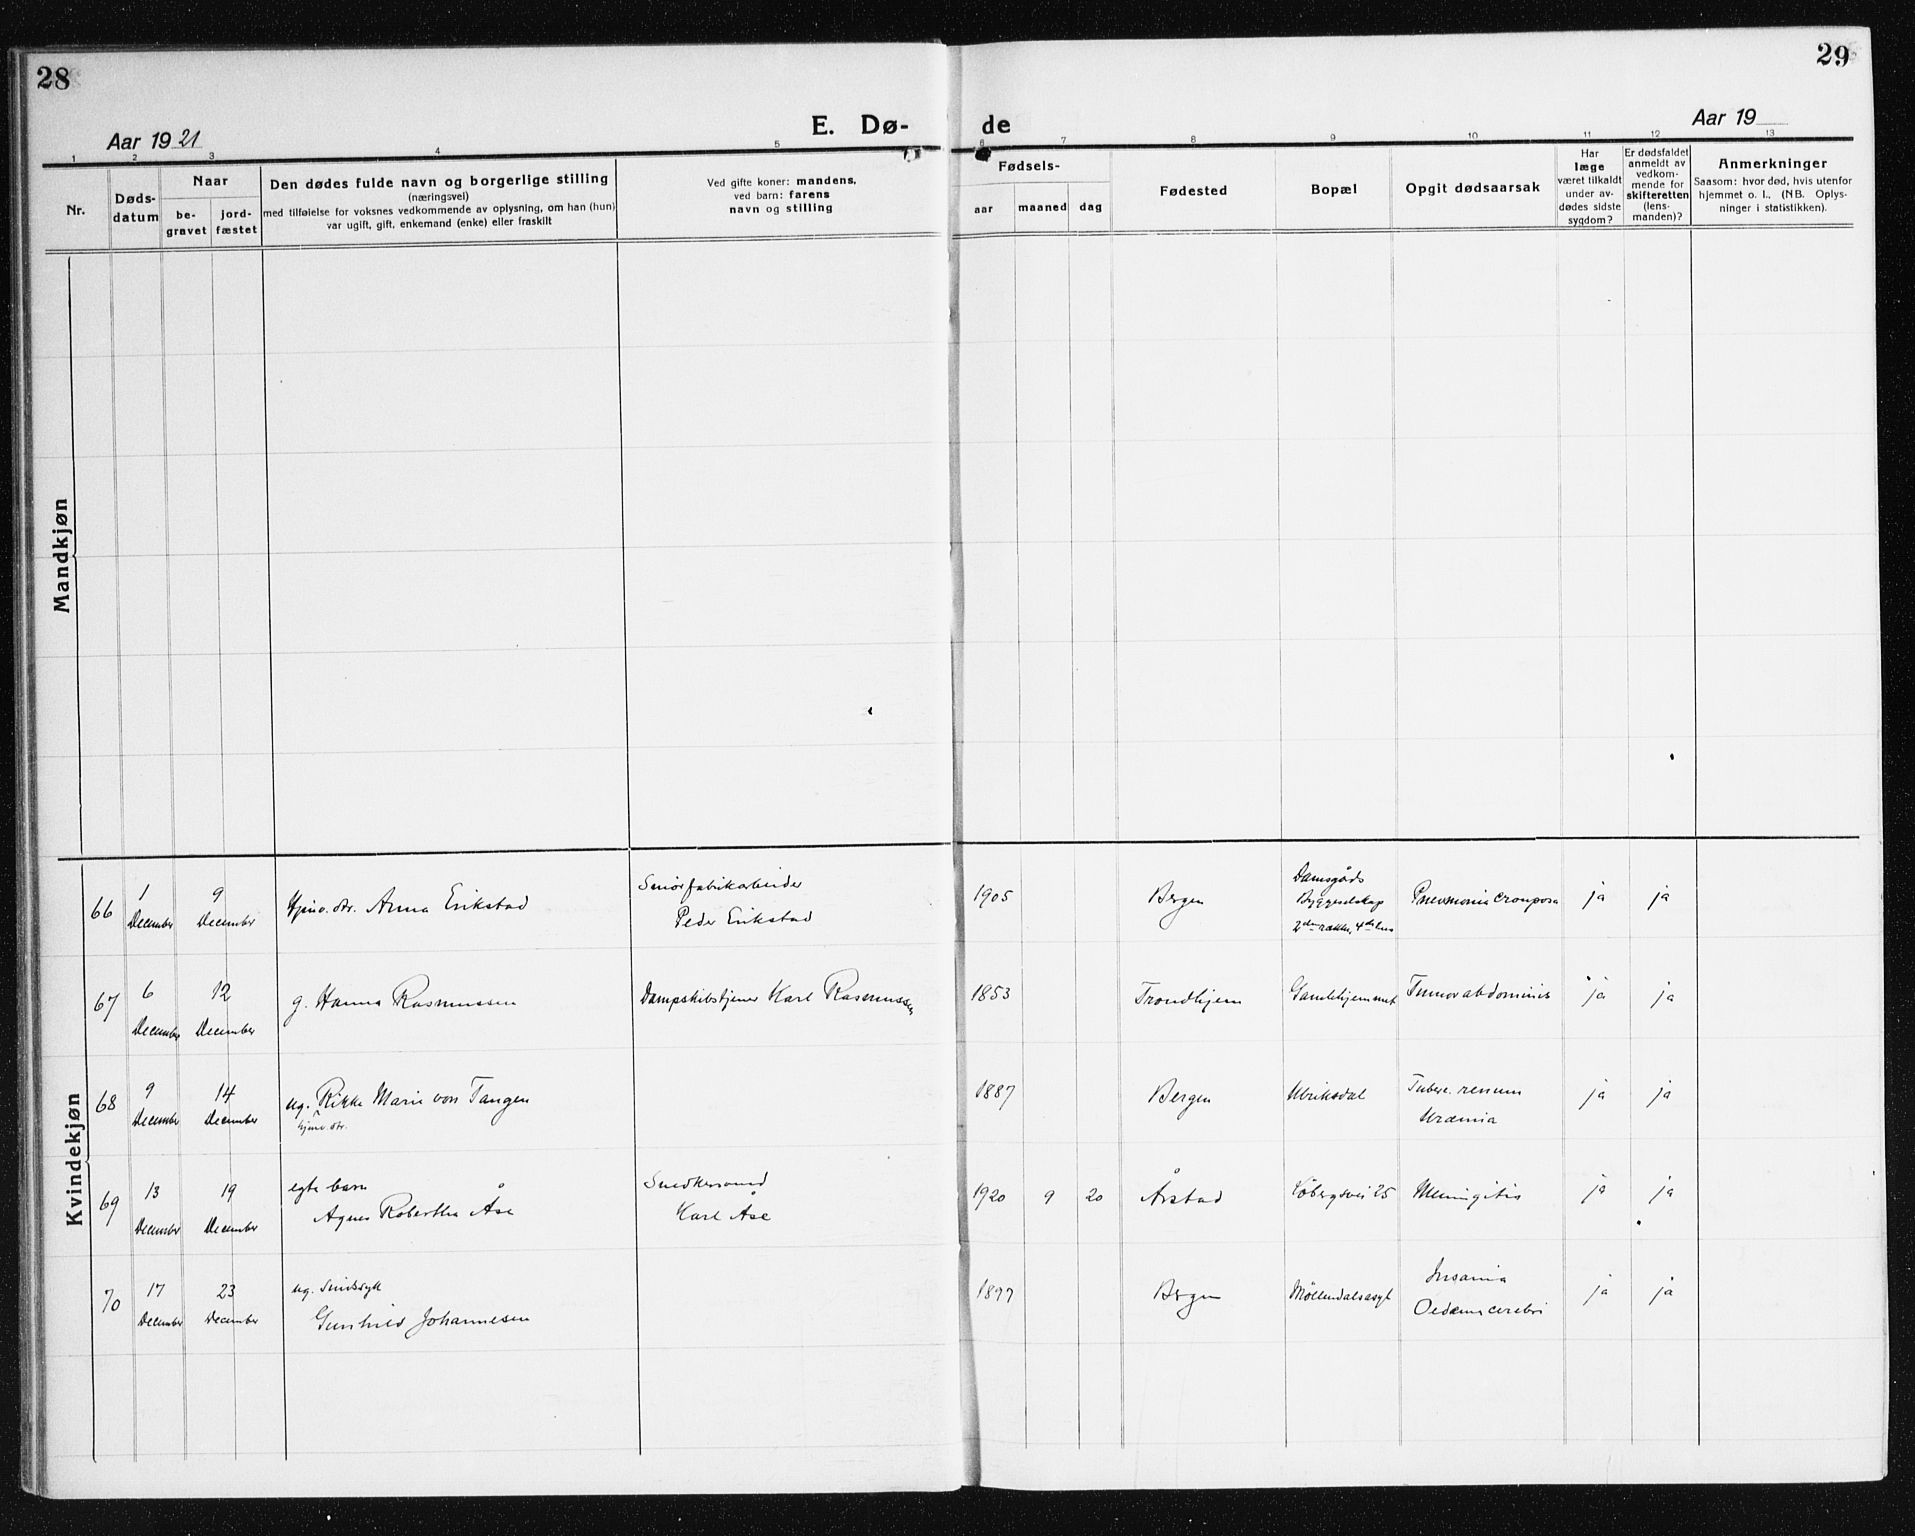 28
29
E. Dø-
de
Aar 1921
Aar 19
1 2 3 4 5 6 7 8 9 10 11 12 13
Nr.
Døds-
datum
Naar
be-
gravet
jord-
fæstet
Den dødes fulde navn og borgerlige stilling
(næringsvei)
med tilføielse for voksnes vedkommende av oplysning, om han (hun)
var ugift, gift, enkemand (enke) eller fraskilt
Ved gifte koner: mandens,
ved barn: farens
navn og stilling
Fødsels-
aar
maaned
dag
Fødested
Bopæl
Opgit dødsaarsak
Har
læge
været tilkaldt
under av-
dødes sidste
sygdom?
Er dødsfaldet
anmeldt av
vedkom-
mende for
skifteretten
(lens-
manden)?
Anmerkninger
Saasom: hvor død, hvis utenfor
hjemmet o. l.. (NB. Oplys-
ninger i statistikken).
Mandkjøn
Kvindekjøn
66
1
December
9
December
Hjmv. dtr. Anna Erikstad
Smørfabrikarbeider
Peder Erikstad
1905
Bergen
Damsgårds
Byggeselskap
2den række, 4de hus
Pneumonia crouposa
ja
ja
67
6
December
12
December
g. Hanna Rasmussen
Dampskibstjener Karl Rasmussen
1853
Trondhjem
Gamlehjemmet
Tumor abdominis
ja
ja
68
9
December
14
December
ug. Rikke Marie von Tangen
hjmv. dtr.
1887
Bergen
Ulriksdal
Tuberc. renum
Uræmia
ja
ja
69
13
December
19
December
egte barn
Agnes Robertha Åse
Snedkersvend
Karl Åse
1920
9
20
Årstad
Løbergsvei 25
Meningitis
ja
ja
70
17
December
23
December
ug. Sindssyk
Gunhild Johannesen
Bergen
Møllendalsasyl
Insania
Oedema cerebri
ja
ja